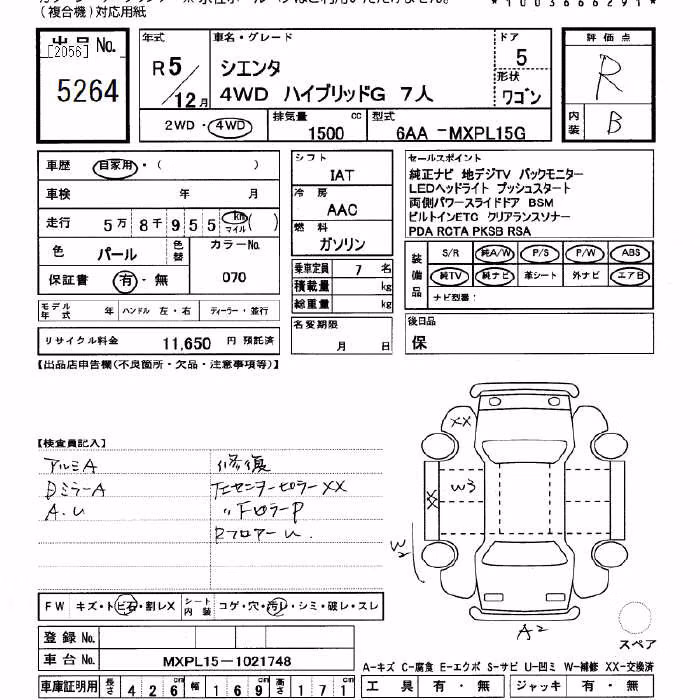 (複合機)対応用紙
*1003666291*
出品No.
[2056]
5264
年式
R5/12月
車名・グレード
シエンタ
4WD ハイブリッドG 7人
ドア
5
形状
ワゴン
評価点
R
内装
B
2WD・4WD
排気量
1500 cc
型式
6AA-MXPL15G
車歴 自家用・( )
車検 年 月
走行 5万8千955 km マイル ( )
色 パール
色替
カラーNo.
070
保証書 有・無
モデル年式 年
ハンドル 左・右
ディーラー・並行
リサイクル料金 11,650 円 預託済
シフト
IAT
冷房
AAC
燃料
ガソリン
乗車定員 7 名
積載量 kg
総重量 kg
名変期限
月 日
セールスポイント
純正ナビ 地デジTV バックモニター
LEDヘッドライト プッシュスタート
両側パワースライドドア BSM
ビルトインETC クリアランスソナー
PDA RCTA PKSB RSA
装備品
S/R 純A/W P/S P/W ABS
純TV 純ナビ 革シート 外ナビ エアB
ナビ型番:
後日品
保
【出品店申告欄(不良箇所・欠品・注意事項等)】
【検査員記入】
アルミA
DミラーA
A.U
修復
左センターピラーXX
〃FピラーP
RフロアーU.
XX
XX
W3
W2
A2
FW キズ・トビ石・割レX
シート内装 コゲ・穴・汚レ・シミ・破レ・スレ
登録No.
車台No. MXPL15-1021748
車庫証明用 長さ 426 cm 幅 169 cm 高さ 171 cm
スペア
A-キズ C-腐食 E-エクボ S-サビ U-凹ミ W-補修 XX-交換済
工具 有・無 ジャッキ 有・無